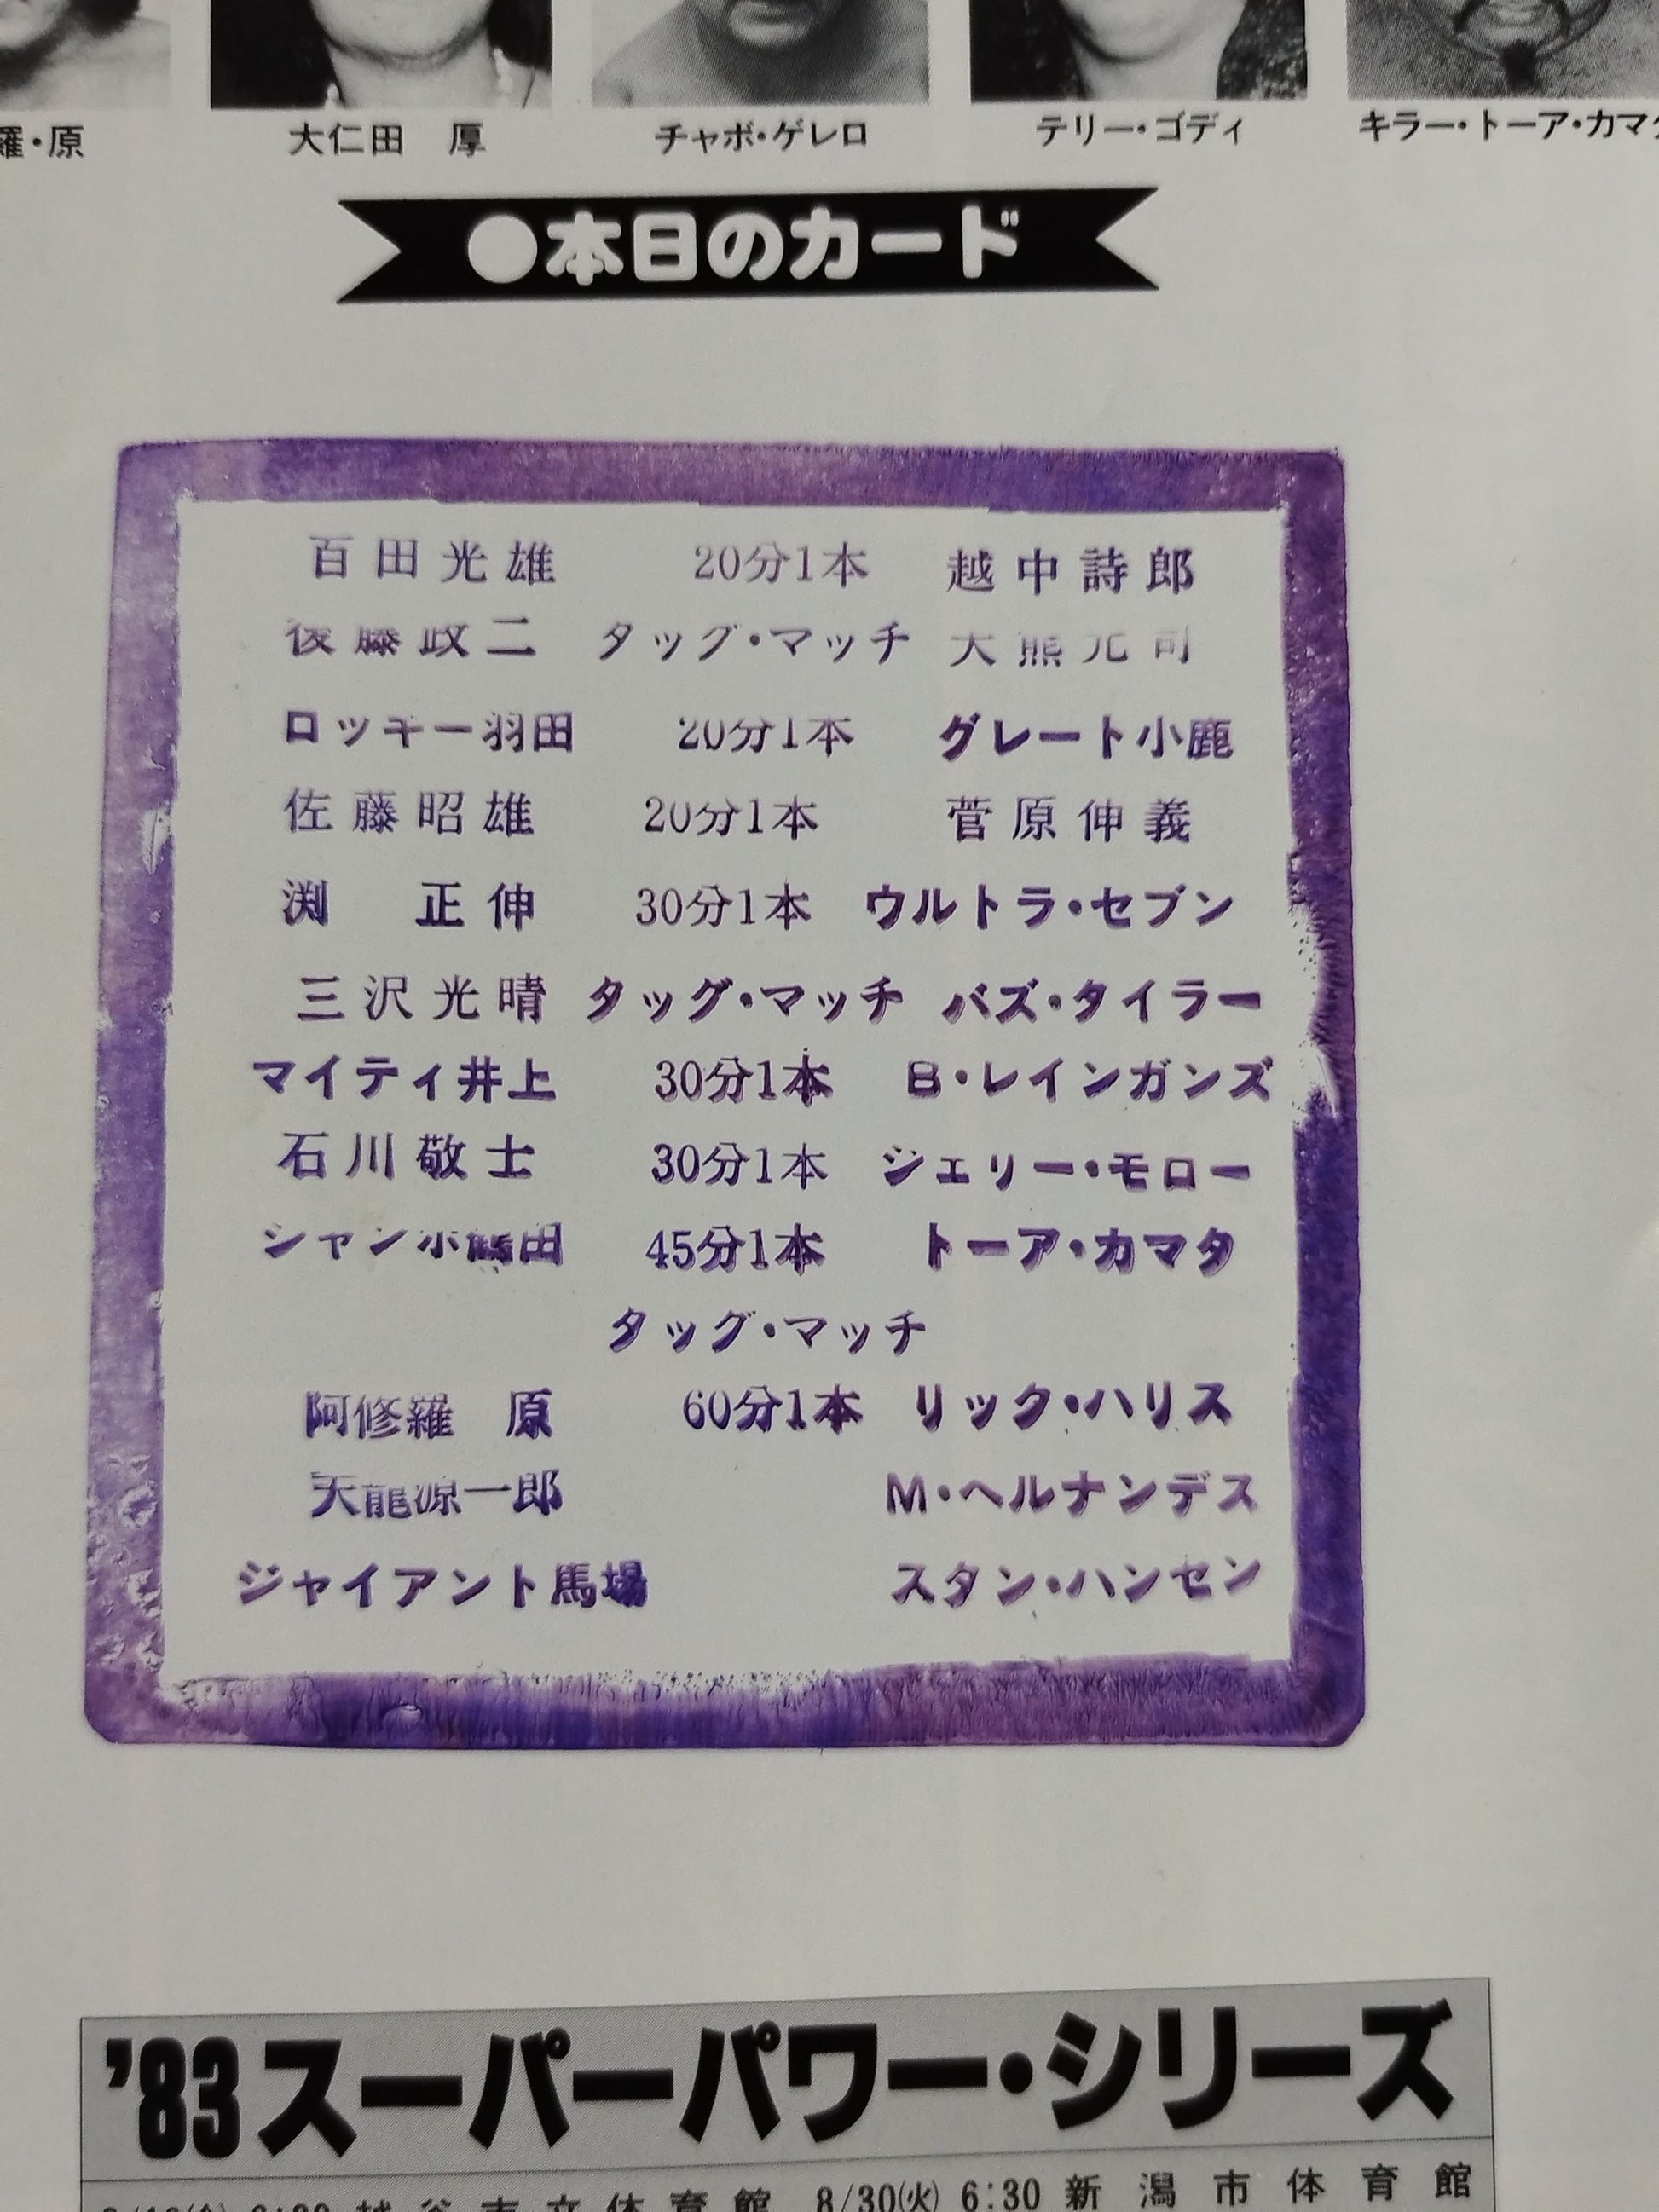 羅・原 大仁田 厚 チャボ・ゲレロ テリー・ゴディ キラー・トーア・カマタ
●本日のカード
百田光雄 20分1本 越中詩郎
後藤政二 タッグ・マッチ 大熊元司
ロッキー羽田 20分1本 グレート小鹿
佐藤昭雄 20分1本 菅原伸義
渕 正伸 30分1本 ウルトラ・セブン
三沢光晴 タッグ・マッチ バズ・タイラー
マイティ井上 30分1本 B・レインガンズ
石川敬士 30分1本 ジェリー・モロー
ジャンボ鶴田 45分1本 トーア・カマタ
タッグ・マッチ
阿修羅 原 60分1本 リック・ハリス
天龍源一郎 M・ヘルナンデス
ジャイアント馬場 スタン・ハンセン
'83スーパーパワー・シリーズ
6:30 越谷市立体育館 8/30(火) 6:30 新潟市体育館